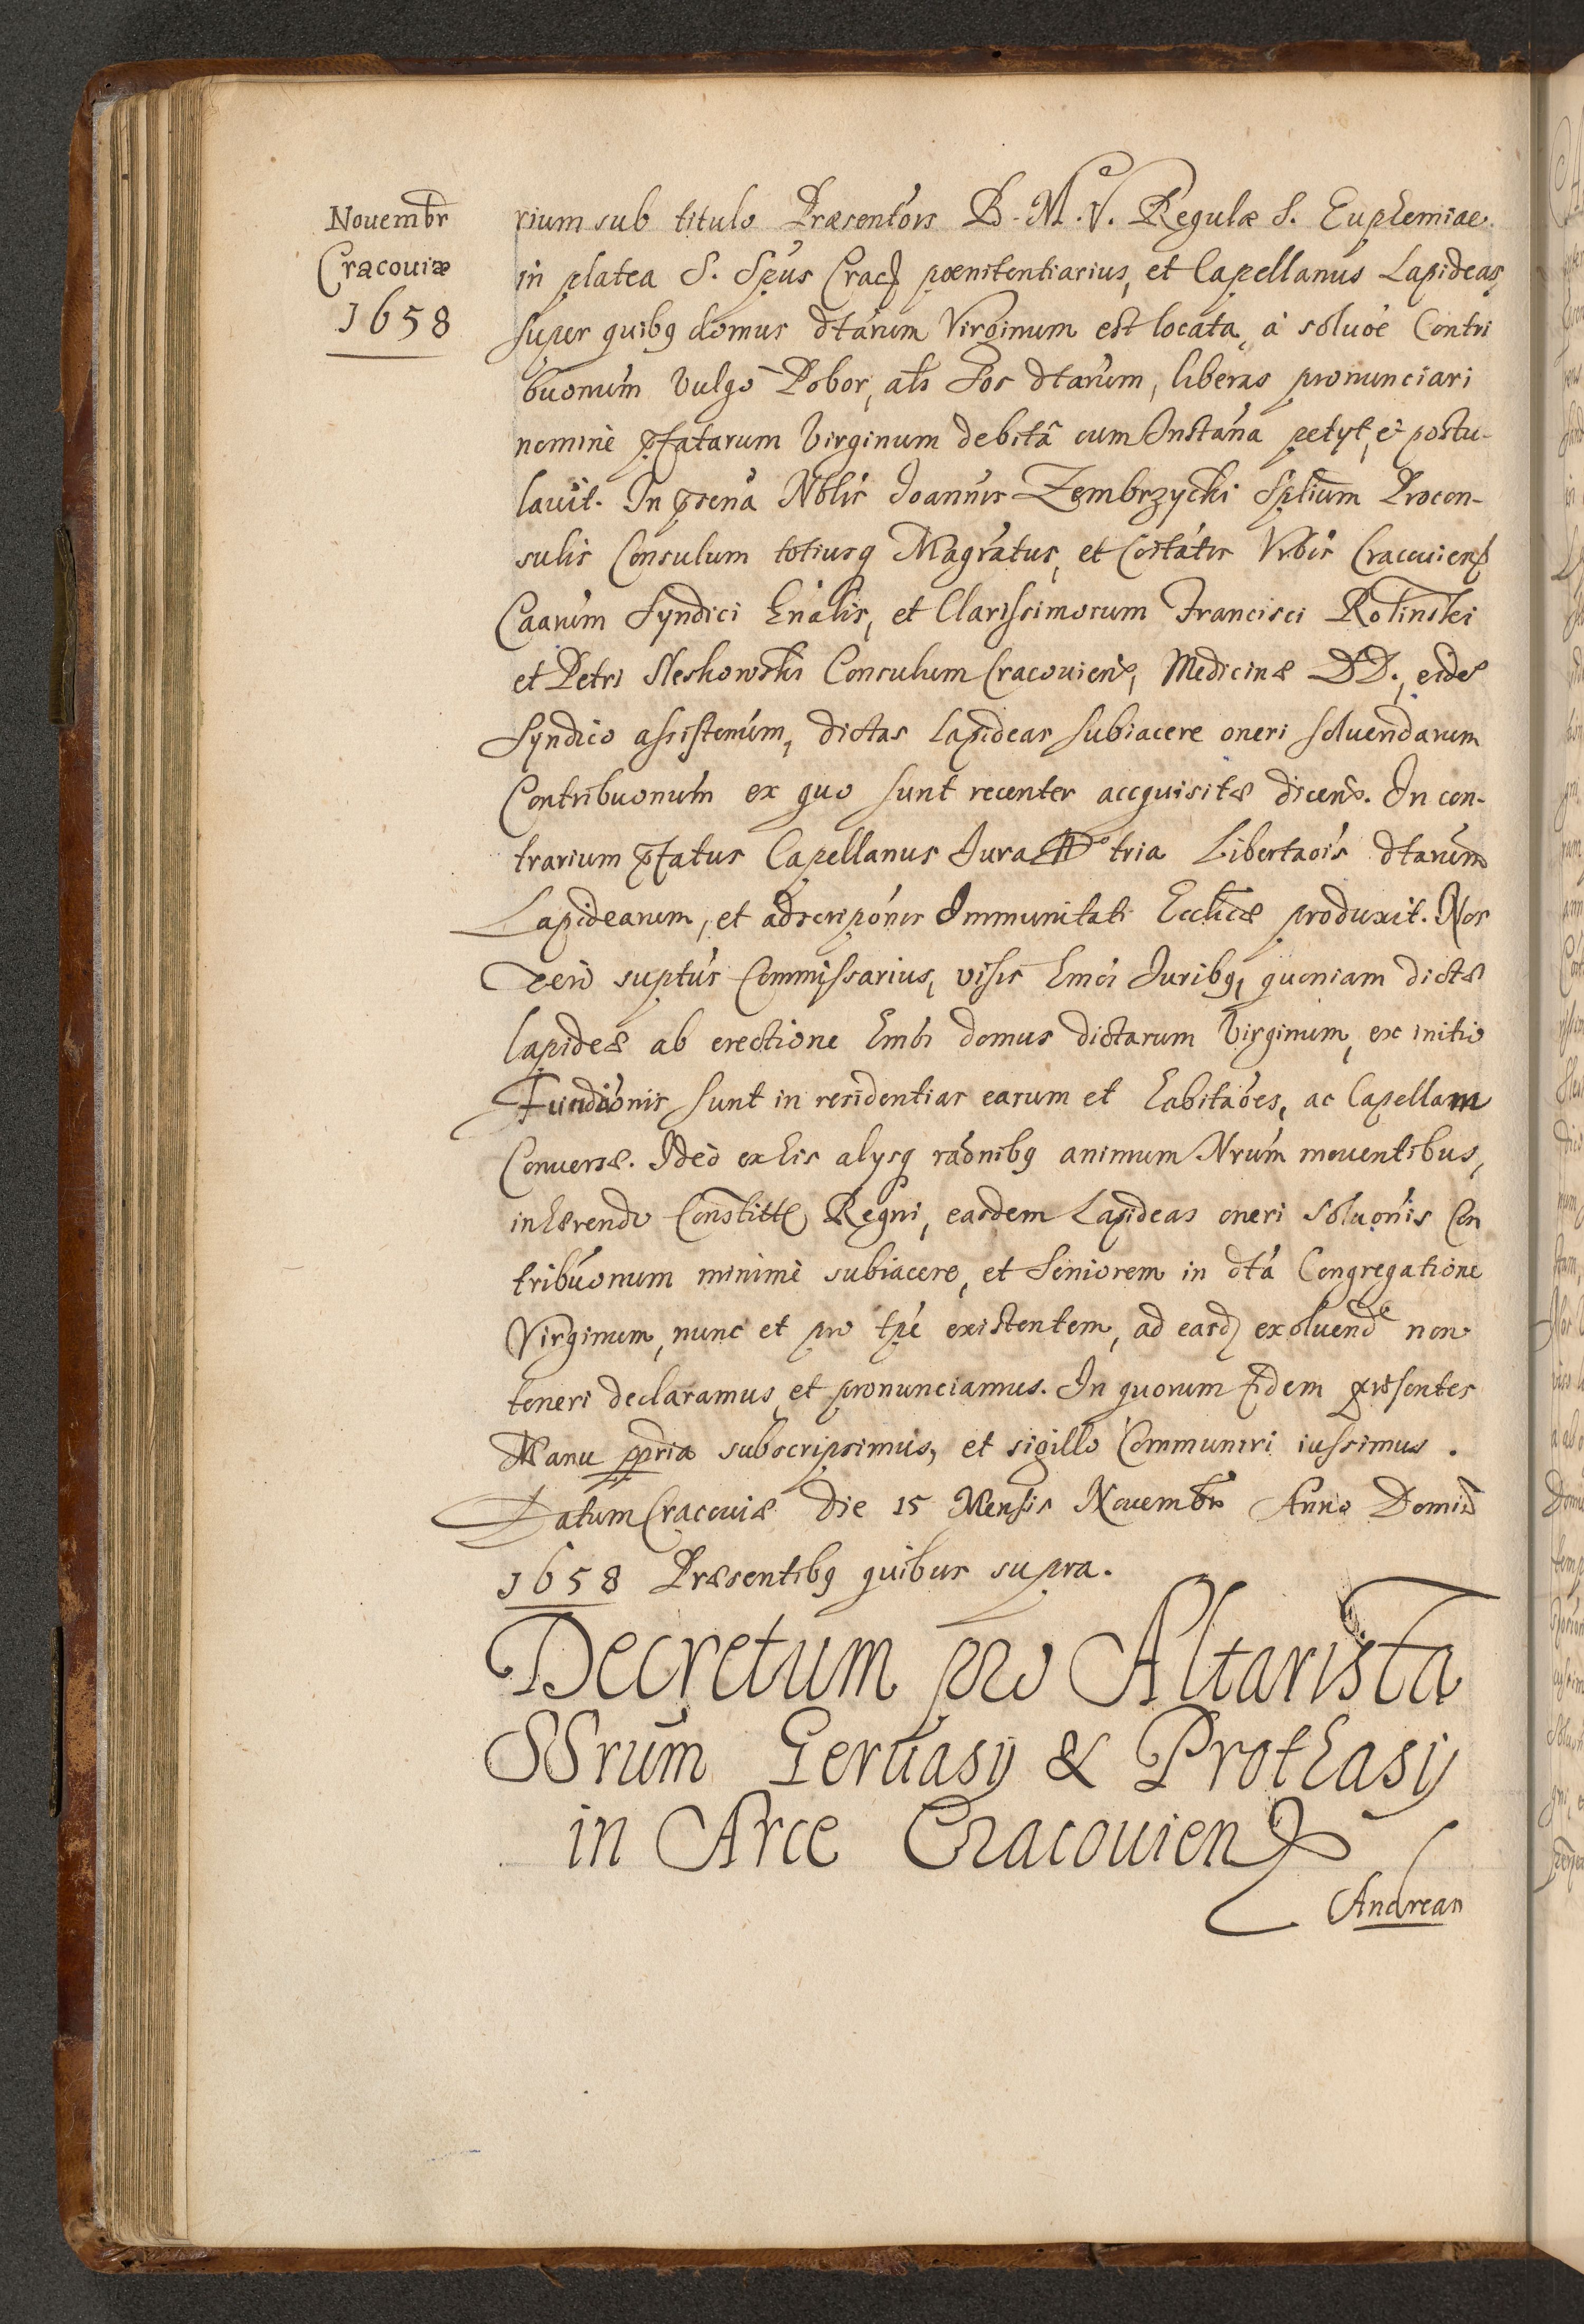 Nouembr
Cracouiæ
1658
rium sub titulo Præsentõis B. M. V. Regulæ S. Euphemiae
in platea S. Spũs Crac pœnitentiarius, et Capellanus Lapideas
super quibq domus dtãrum Virginum est locata, à soluõe Contri
buonum vulgo Pobor, als Fos dtarũm, liberas pronunciari
nomine ptatarum Virginum debitâ cum Instãna petyt, et postu-
lauit. In prsenã Nblis Ioannis Zembrzycki Spliũm Procon-
sulis Consulum totiusq Magrãtus, et Coitãtis Vrbis Cracouien
Caarũm Syndici Gnãlis, et Clarissimorum Francisci Rolinski
et Petri Sleskowski Consulum Cracouien, Medicinæ DD., eidẽ
Syndico assistenũm, dictas Lapideas subiacere oneri soluendarum
Contribuonũm ex quo sunt recenter accquisitæ dicens. In con-
trarium ptatus Capellanus Iura tria Libertaõis dtarũm
Lapidearum, et adscripõnis Immunitati Ecclicæ produxit. Nos
verò suptũs Commissarius, visis hmõi Iuribq, quoniam dictæ
lapideæ ab erectione hmõi domus dictarum Virginum, ex initio
Fundõnis sunt in residentias earum et habitãões, ac Capellam
Conuersæ. Ideò ex his alysq raõnibq animum Nrũm mouentibus,
inhærendo Constitt Regni, easdem Lapideas oneri soluõnis Con
tribũonum minimè subiacere, et Seniorem in dtã Congregatione
Virginum, nunc et pro tpẽ existentem, ad easd exoluend non
teneri declaramus, et pronunciamus. In quorum fidem præsentes
Manu ppria subscripsimus, et sigillo Communiri iussimus.
Datum Cracouiæ die 15 Mensis Nouembr Anno Domin
1658 Præsentibq quibus supra.
Decretum pro Altarista
SSrũm Geruasij & Prothasij
in Arce Cracouien
Andreas